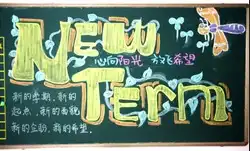 New
心向阳光 放飞希望
Term
新的学期、新的
起点、新的面貌
新的立场、新的希望。